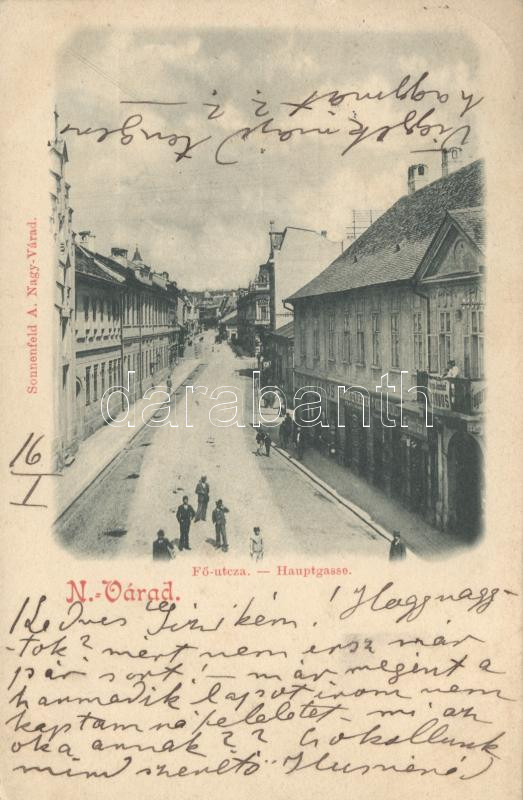 hagymat ? ?
Sonnenfeld A. Nagy-Várad.
darabanth
16
I
Fő-utcza. — Hauptgasse.
N.-Várad.
Kedves Gizikém! Hogy vagy-
tok? mert nem irsz már
pár sort! – már megint a
harmadik lapot irom nem
kaptam rá feleletet – mi az
oka annak?? Csokollunk
mind szerető